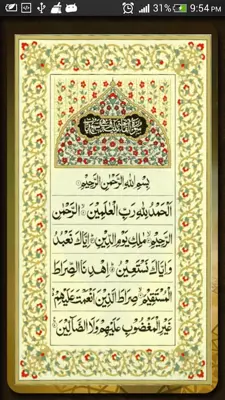 31% 9:54 PM
بِسْمِ اللهِ الرَّحْمٰنِ الرَّحِيْمِ
اَلْحَمْدُ لِلّٰهِ رَبِّ الْعٰلَمِيْنَ الرَّحْمٰنِ
الرَّحِيْمِ مٰلِكِ يَوْمِ الدِّيْنِ اِيَّاكَ نَعْبُدُ
وَاِيَّاكَ نَسْتَعِيْنُ اِهْدِنَا الصِّرَاطَ
الْمُسْتَقِيْمَ صِرَاطَ الَّذِيْنَ اَنْعَمْتَ عَلَيْهِمْ
غَيْرِ الْمَغْضُوْبِ عَلَيْهِمْ وَلَا الضَّآلِّيْنَ